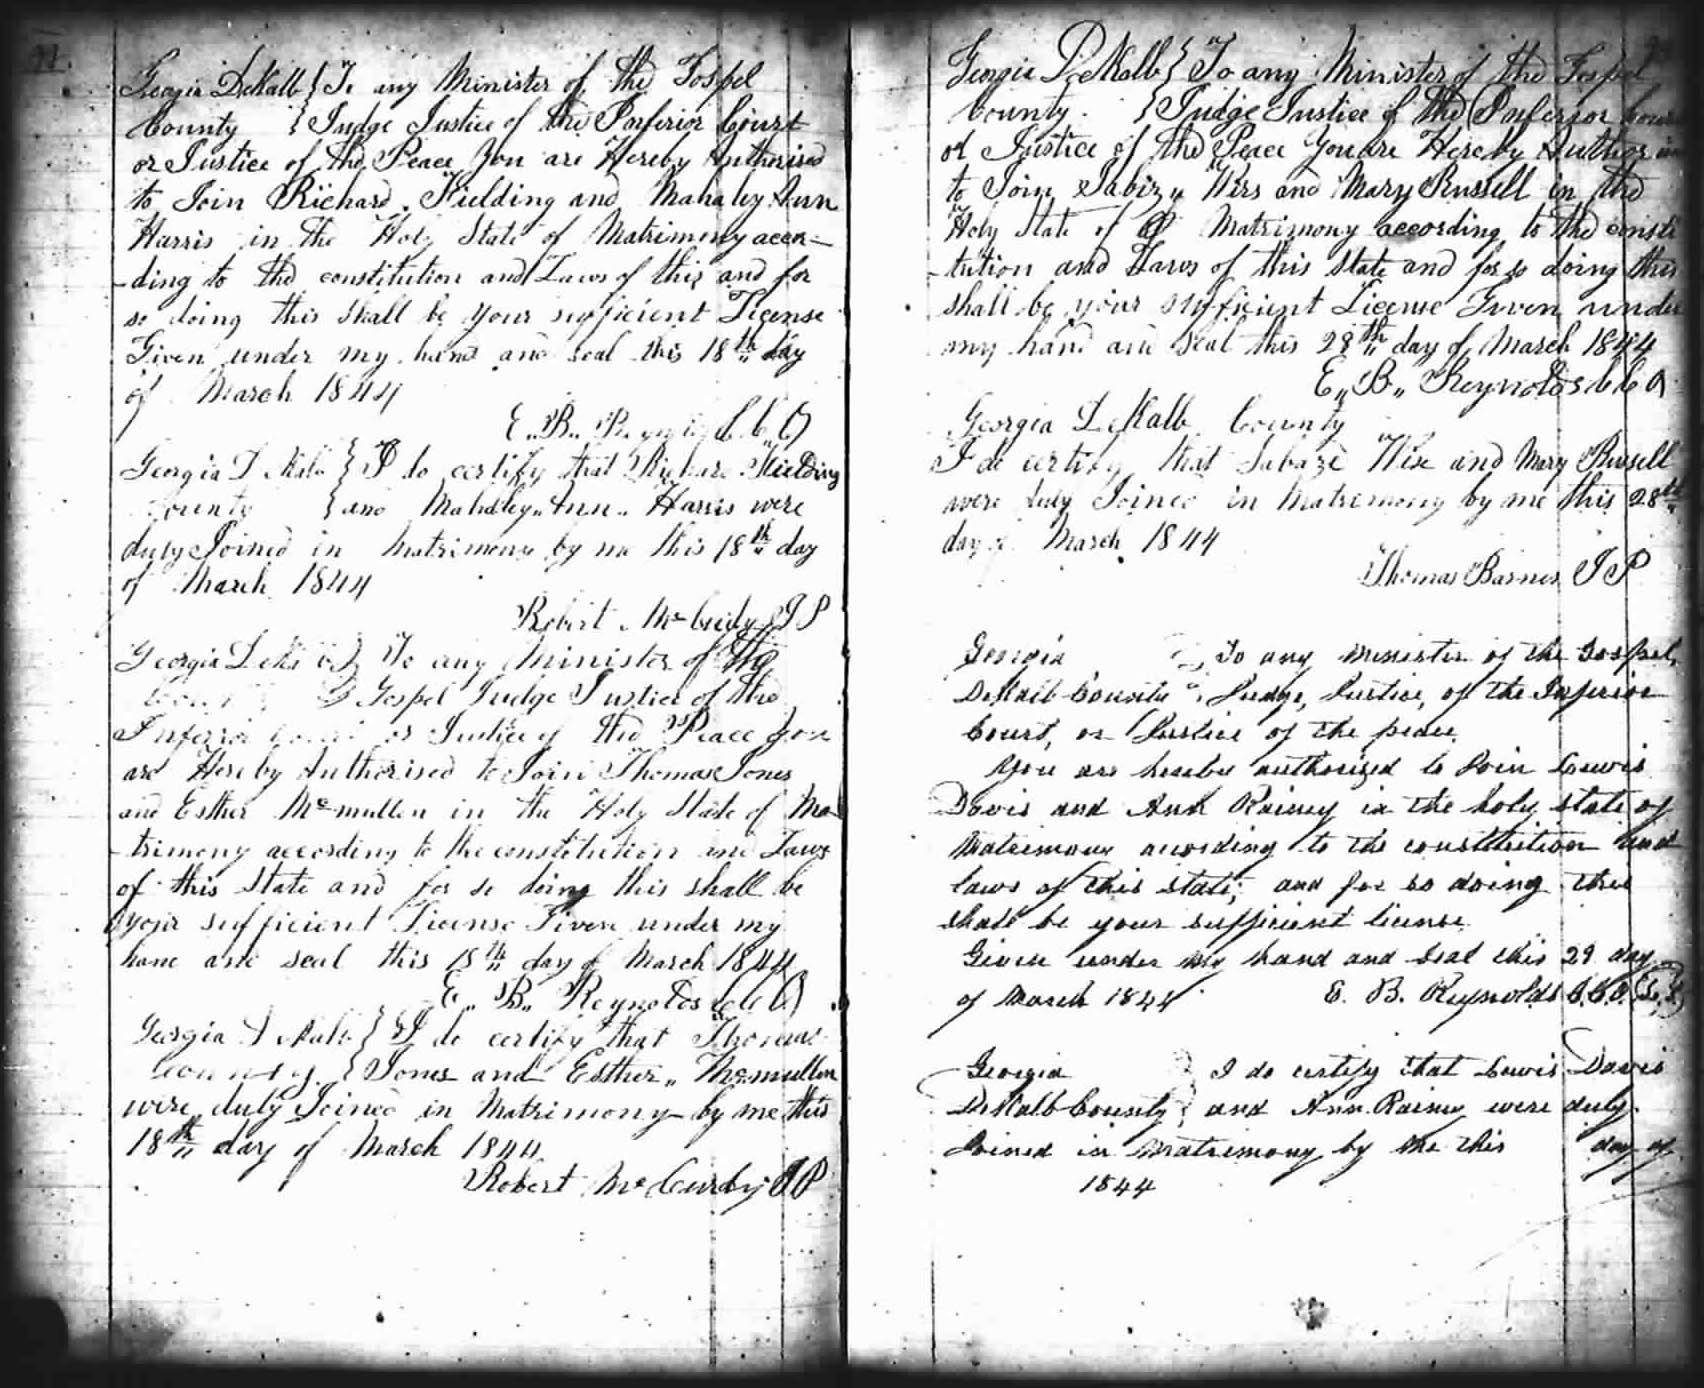 91.
Georgia DeKalb } To any Minister of the Gospel
County } Judge Justice of the Inferior Court
or Justice of the Peace You are Hereby Authorised
to Join Richard Fielding and Mahaley Ann
Harris in the Holy State of Matrimony accor-
-ding to the constitution and Laws of this and for
so doing this Shall be your sufficient License
Given under my hand and seal this 18th day
of March 1844
E. B. Reynolds C. C. O
Georgia DeKalb } I do certify that Richard Fielding
County } and Mahaley Ann Harris were
duly Joined in Matrimony by me this 18th day
of March 1844
Robert McCurdy J P
Georgia DeKalb } To any Minister of the
County } Gospel Judge Justice of the
Inferior Court or Justice of the Peace You
are Hereby Authorised to Join Thomas Jones
and Esther Mcmullen in the Holy State of Ma
-trimony according to the constitution and Laws
of this State and for so doing this shall be
your sufficient License Given under my
hand and seal this 18th day of March 1844
E. B. Reynolds C C O
Georgia DeKalb } I do certify that Thomas
County } Jones and Esther Mcmullen
were duly Joined in Matrimony by me this
18th day of March 1844
Robert McCurdy J P
Georgia DeKalb } To any Minister of the Gospel
County } Judge Justice of the Inferior Court
or Justice of the Peace You are Hereby Author
to Join and Mary Russell in the
Holy State of Matrimony according to the consti
-tution and Laws of this State and for so doing this
shall be your sufficient License Given under
my hand and Seal this 28th day of March 1844
E. B. Reynolds C C O
Georgia DeKalb County
I do certify that and Mary Russell
were duly Joined in Matrimony by me this 28th
day of March 1844
Thomas Barnes J P
Georgia } To any Minister of the Gospel,
DeKalb County } Judge, Justice, of the Inferior
Court, or Justice of the peace
You are hereby authorized to Join Lewis
Davis and Ann Rainey in the holy state of
Matrimony according to the constitution and
laws of this state; and for so doing this
shall be your sufficient license
Given under my hand and seal this 29 day
of March 1844 E. B. Reynolds C.C.O. (L.S.)
Georgia } I do certify that Lewis Davis
DeKalb County } and Ann Rainey were duly
Joined in Matrimony by me this day of
1844